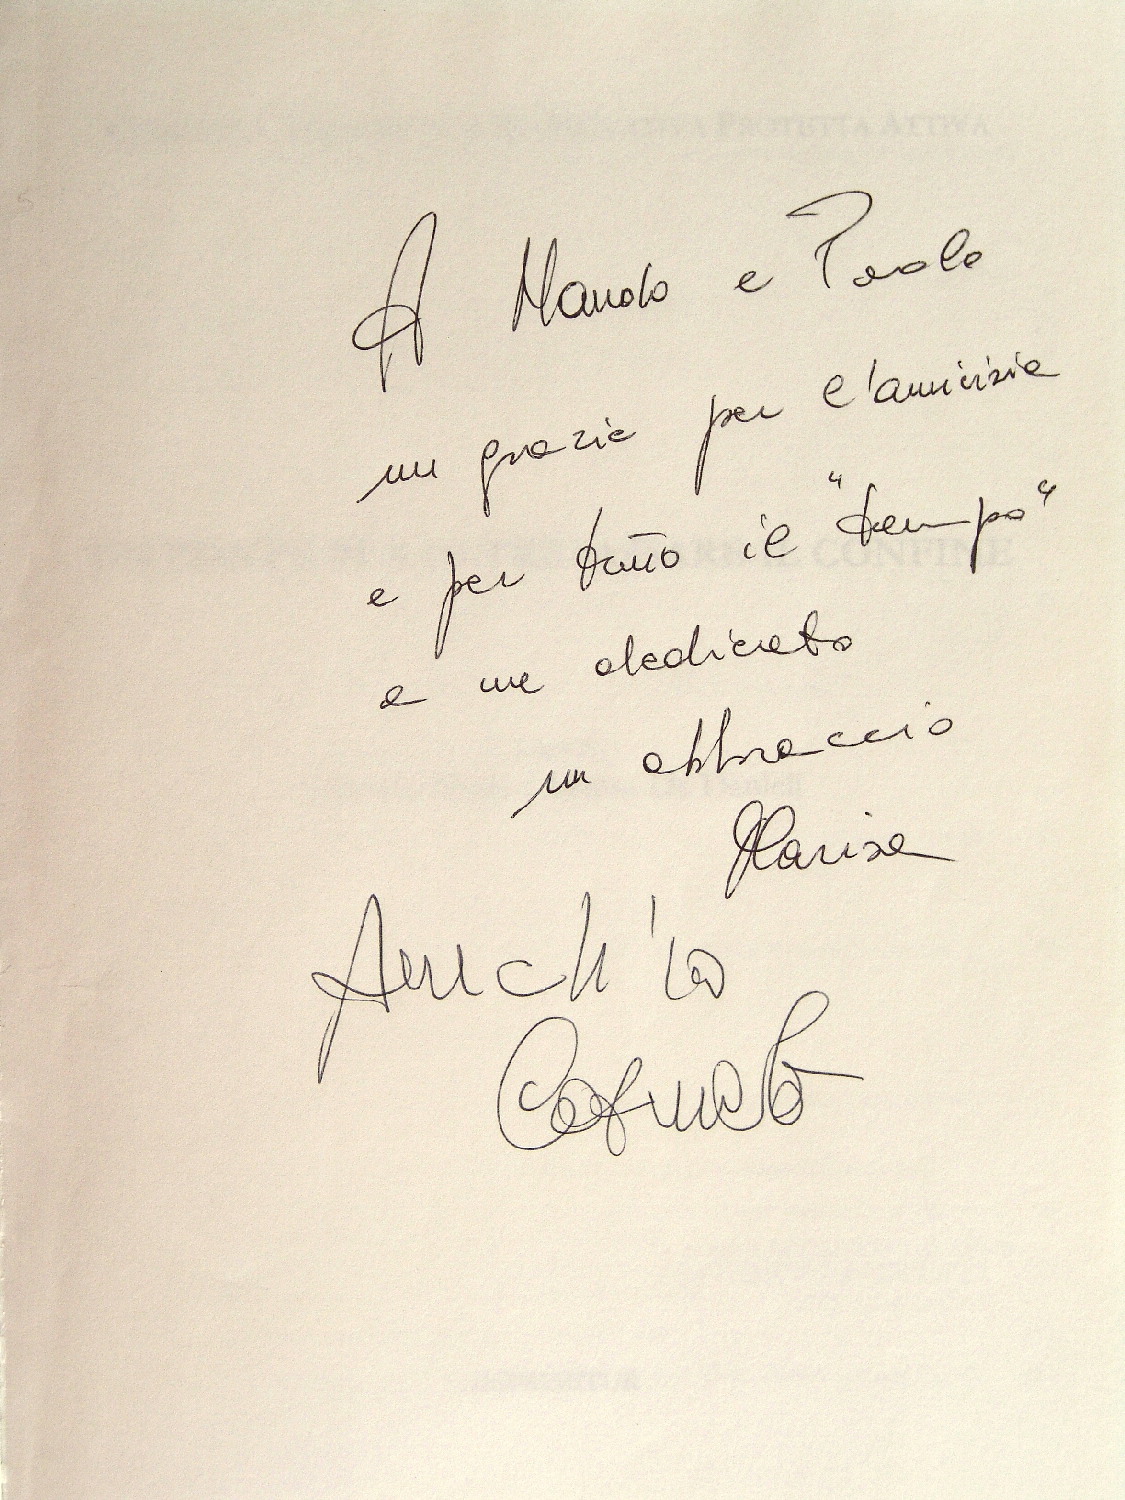 A Manolo e Paolo
un grazie per l'amicizia
e per tutto il "tempo"
a me dedicato
un abbraccio
Marisa
Anch'io
PROTETTA ATTIVA
IL CONFINE